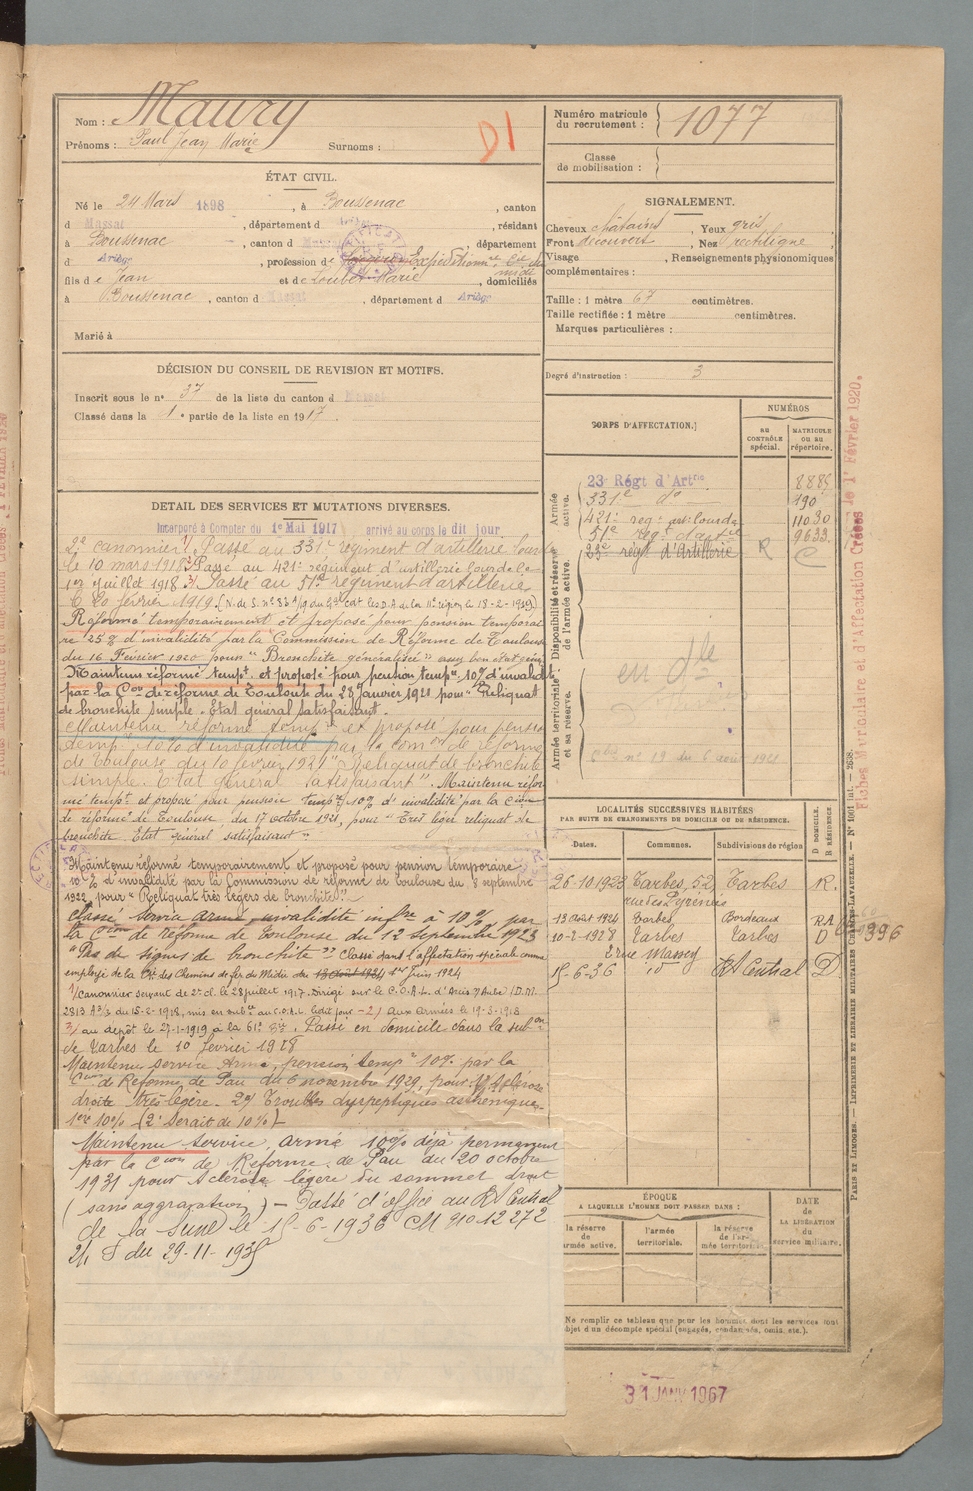 Nom : Maury
Prénoms : Paul Jean Marie Surnoms :
D1
Numéro matricule du recrutement : 1077
Classe de mobilisation :
ÉTAT CIVIL.
Né le 24 Mars 1898, à Boussenac, canton
d Massat, département d Ariège, résidant
à Boussenac, canton d Massat, département
d Ariège, profession de Expéditionre Cie du Midi
fils de Jean et de Loubet Marie, domiciliés
à Boussenac, canton d Massat, département d Ariège
Marié à
SIGNALEMENT.
Cheveux châtains, Yeux gris
Front découvert, Nez rectiligne
Visage , Renseignements physionomiques
complémentaires :
Taille : 1 mètre 67 centimètres.
Taille rectifiée : 1 mètre centimètres.
Marques particulières :
Degré d'instruction : 3
DÉCISION DU CONSEIL DE REVISION ET MOTIFS.
Inscrit sous le n° 37 de la liste du canton d Massat
Classé dans la 1e partie de la liste en 1917.
CORPS D'AFFECTATION.
NUMÉROS
au CONTRÔLE spécial.
MATRICULE ou au répertoire.
Armée active.
23e Régt d'Artrie 8885
331e do 190
421e reg. art. lourde 11030
51e reg. d'artie 9633
Disponibilité et réserve de l'armée active.
23e régt d'Artillerie R C
Armée territoriale et sa réserve.
en dle
n° 19 du 6 août 1921
DETAIL DES SERVICES ET MUTATIONS DIVERSES.
Incorporé à Compter du 1er Mai 1917 arrivé au corps le dit jour
2e canonnier 1/ Passé au 331e régiment d'artillerie lourde
le 10 mars 1918 2/ Passé au 421e régiment d'artillerie lourde le
1er Juillet 1918. 3/ Passé au 51e régiment d'artillerie
le 20 février 1919. (N. de S. n° 83 du 18-2-1919)
Réformé temporairement et proposé pour pension temporai
re 25% d'invalidité par la Commission de Réforme de Toulouse
du 16 Février 1920 pour "Bronchite généralisée" assez bon état génal
Maintenu réformé tempt. et proposé pour pension tempre 10% d'invalidité
par la Con de réforme de Toulouse du 28 Janvier 1921 pour "Reliquat
de bronchite simple. Etat général satisfaisant.
Maintenu réformé tempre et proposé pour pension
temp. 10% d'invalidité par la Comon de réforme
de Toulouse du 10 février 1921 "Reliquat de bronchite
simple. Etat général satisfaisant". Maintenu réfor
mé tempt et proposé pour pension tempre 10% d'invalidité par la Cion
de réforme de Toulouse du 17 octobre 1921, pour "Très léger reliquat de
bronchite. Etat général satisfaisant"
Maintenu réformé temporairement et proposé pour pension temporaire
10% d'invalidité par la Commission de réforme de Toulouse du 8 septembre
1922 pour "Reliquat très légers de bronchite".
Classé service armé, invalidité infre à 10%, par
la Cion de réforme de Toulouse du 12 septembre 1923
"Pas de signes de bronchite" Classé dans l'affectation spéciale comme
employé de la Cie des Chemins de fer du Midi du 13 Août 1924 1er Juin 1924
1/ Canonnier servant de 2e cl. le 28 juillet 1917. Dirigé sur le C.O.A.L. d'Arcis s/ Aube (D.M.
2813 A3/3 du 15-2-1918, mis en subce au C.O.A.L. ledit jour - 2/ aux armées le 19-5-1918
3/ au dépôt le 27-1-1919 à la 61e Bie. Passé en domicile dans la subon
de Tarbes le 10 février 1928
Maintenu service Armé, pension tempre 10% par la
Cion de Réforme de Pau du 6 novembre 1929, pour 1°/ Sclérose
droite très légère. 2°/ Troubles dyspeptiques asthéniques.
1ère 10% (2e serait de 10%)
Maintenu Service armé 10% déjà permanent
par la Cion de Réforme de Pau du 20 octobre
1931 pour Sclérose légère du sommet droit
(sans aggravation) - Passé d'office au Rt Central
de la Seine le 15-6-1936 CM 910-12272
du 29-11-1935
LOCALITÉS SUCCESSIVES HABITÉES
PAR SUITE DE CHANGEMENTS DU DOMICILE OU DE RÉSIDENCE.
Dates. Communes. Subdivisions de région D DOMICILE. R RÉSIDENCE
26-10-1923 Tarbes, 52, rue des Pyrénées Tarbes R.
13 Août 1924 Tarbes Bordeaux R.A.
10-2-1928 Tarbes 2 rue Massey Tarbes D 1396
15-6-36 id Rt Central D
ÉPOQUE
A LAQUELLE L'HOMME DOIT PASSER DANS :
la réserve de l'armée active.
l'armée territoriale.
la réserve de l'armée territoriale
DATE de LA LIBÉRATION du service militaire.
Ne remplir ce tableau que pour les hommes dont les services font
objet d'un décompte spécial (engagés, condamnés, omis, etc.).
31 JANV 1967
Fiches Matriculaire et d'Affectation Créées le 1er Février 1920.
PARIS ET LIMOGES. — IMPRIMERIE ET LIBRAIRIE MILITAIRES CHARLES-LAVAUZELLE. — N° 1061 int. — 2638.